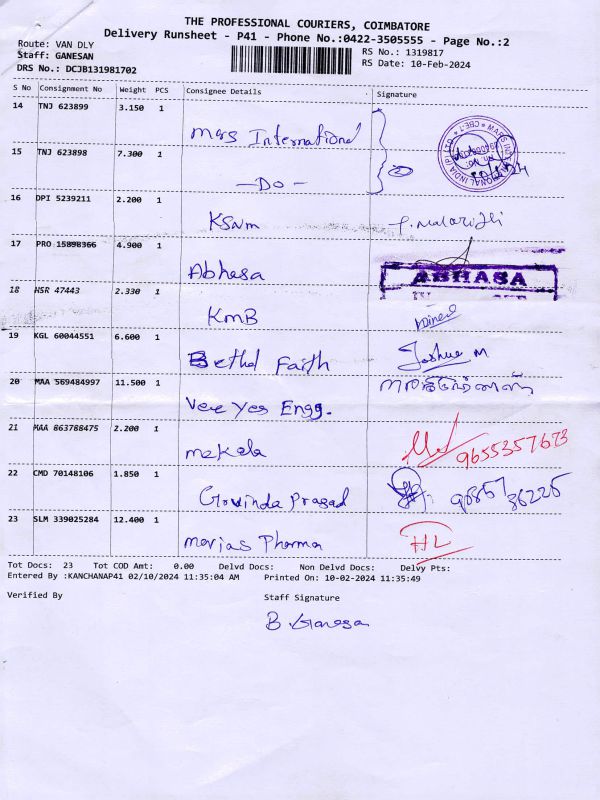 THE PROFESSIONAL COURIERS, COIMBATORE
Delivery Runsheet - P41 - Phone No.:0422-3505555 - Page No.:2
Route: VAN DLY
RS No.: 1319817
Staff: GANESAN
RS Date: 10-Feb-2024
DRS No.: DCJB131981702
S No Consignment No Weight PCS Consignee Details Signature
14 TNJ 623899 3.150 1
Mars International
15 TNJ 623898 7.300 1
- Do -
16 DPI 5239211 2.200 1
KSNM
17 PRO 15898366 4.900 1
Abhasa ABHASA
18 HSR 47443 2.330 1
KMB
19 KGL 60044551 6.600 1
Bethel Faith Joshua M
20 MAA 569484997 11.500 1
Vee Yes Engg.
21 MAA 863788475 2.200 1
mekala 9655357673
22 CMD 70148106 1.850 1
Govinda Prasad
23 SLM 339025284 12.400 1
Marias Pharma HL
Tot Docs: 23 Tot COD Amt: 0.00 Delvd Docs: Non Delvd Docs: Delvy Pts:
Entered By :KANCHANAP41 02/10/2024 11:35:04 AM Printed On: 10-02-2024 11:35:49
Verified By Staff Signature
B. Ganesan